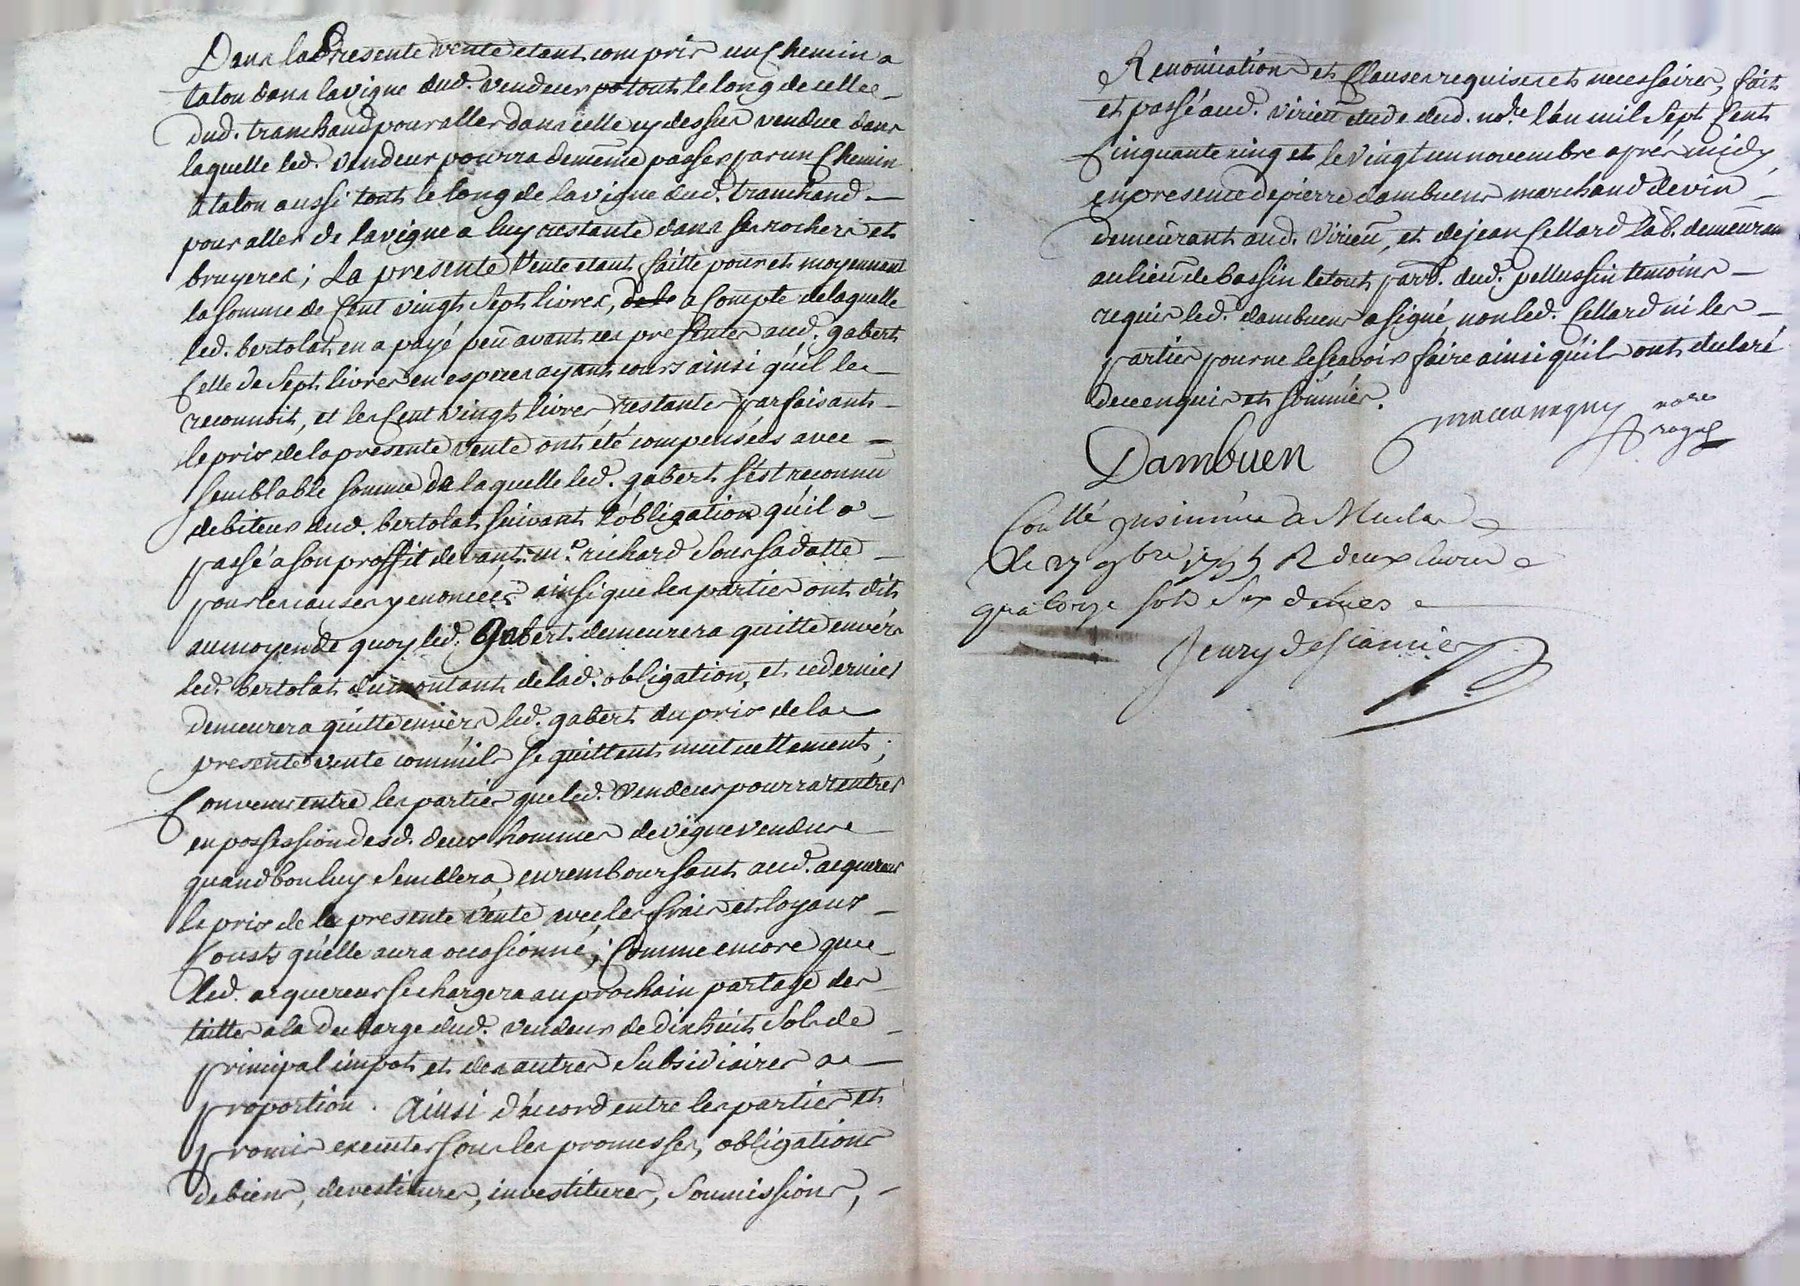 Dans la Presente vente etant compris un Chemin a
talon dans la vigne dud. vendeur tout le long de celle
dud. tranchand pour aller dans celle cy dessus vendue dans
laquelle led. vendeur pourra de meme passer par un Chemin
a talon aussi tout le long de la vigne dud. tranchand
pour aller de la vigne a luy restante dans ses rochers et
bruyeres; La presente Vente etant faitte pour et moyennant
la somme de Cent vingt Sept livres, a compte de laquelle
led. bertolat en a payé peu avant ces presentes aud. gabert
Celle de Sept livres en especes ayant cours ainsi qu'il le
reconnoit, et les Cent vingt livres restantes parfaisant
le prix de la presente Vente ont été compensées avec
semblable somme de laquelle led. gabert s'est reconnu
debiteur dud. bertolat suivant l'obligation qu'il a
passé a son proffit devant me. richard Sous sa datte
pour les causes y enoncées ainsi que les parties ont dit
au moyen de quoy led. Gabert demeurera quitte envers
led. bertolat du montant de lad. obligation, et ce dernier
demeurera quitte envers led. gabert du prix de la
presente vente comm'ils se quittent mutuellement;
Convenu entre les parties que led. Vendeur pourra rentrer
en possession desd. deux hommes de vigne vendue
quand bon luy semblera, en remboursant aud. acquereur
le prix de la presente Vente avec les frais et loyaux
Cousts qu'elle aura occasionné; Comme encore que
led. acquereur se chargera au prochain partage des
tailles a la decharge dud. vendeur de dix huit Sols de
principal impot et des autres Subsidiaires a
proportion. Ainsi d'accord entre les parties et
promis executer sous les promesses, obligations
de biens, devestitures, investitures, Soumissions,
Renonciations et Clauses requises et necessaires, fait
et passé aud. Virieu etude dud. nore. l'an mil Sept Cent
Cinquante cinq et le vingt un novembre aprés midy
en presence de pierre dambuen marchand de vin
demeurant aud. Virieu, et de jean Cellard lab. demeurant
au lieu de bassin le tout parr. dud. pellussin temoins
requis led. dambuen a signé, non led. Cellard ni les
parties pour ne le sçavoir faire ainsi qu'ils ont declaré
de ce enquis et sommés.
nore
royal
Dambuen
Conllé Insinué a
le 27 9bre 1755 R deux livres
quatorze sols Six deniers